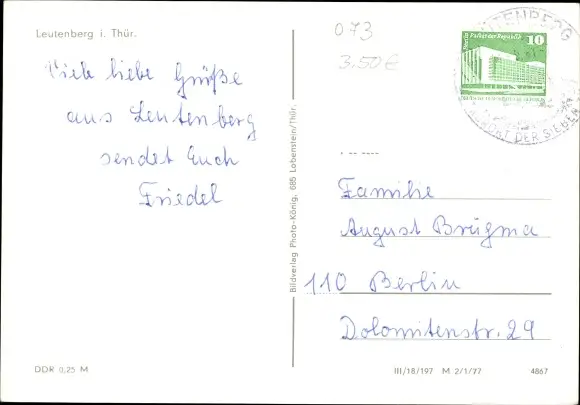 Leutenberg i. Thür.
Viele liebe Grüße
aus Leutenberg
sendet Euch
Friedel
Bildverlag Photo-König, 685 Lobenstein/Thür.
DDR 0,25 M
073
3.50€
LEUTENBERG
Berlin Palast der Republik
10
DER SIEBEN
Familie
August Brügma
110 Berlin
Dolomitenstr. 29
III/18/197 M 2/1/77 4867